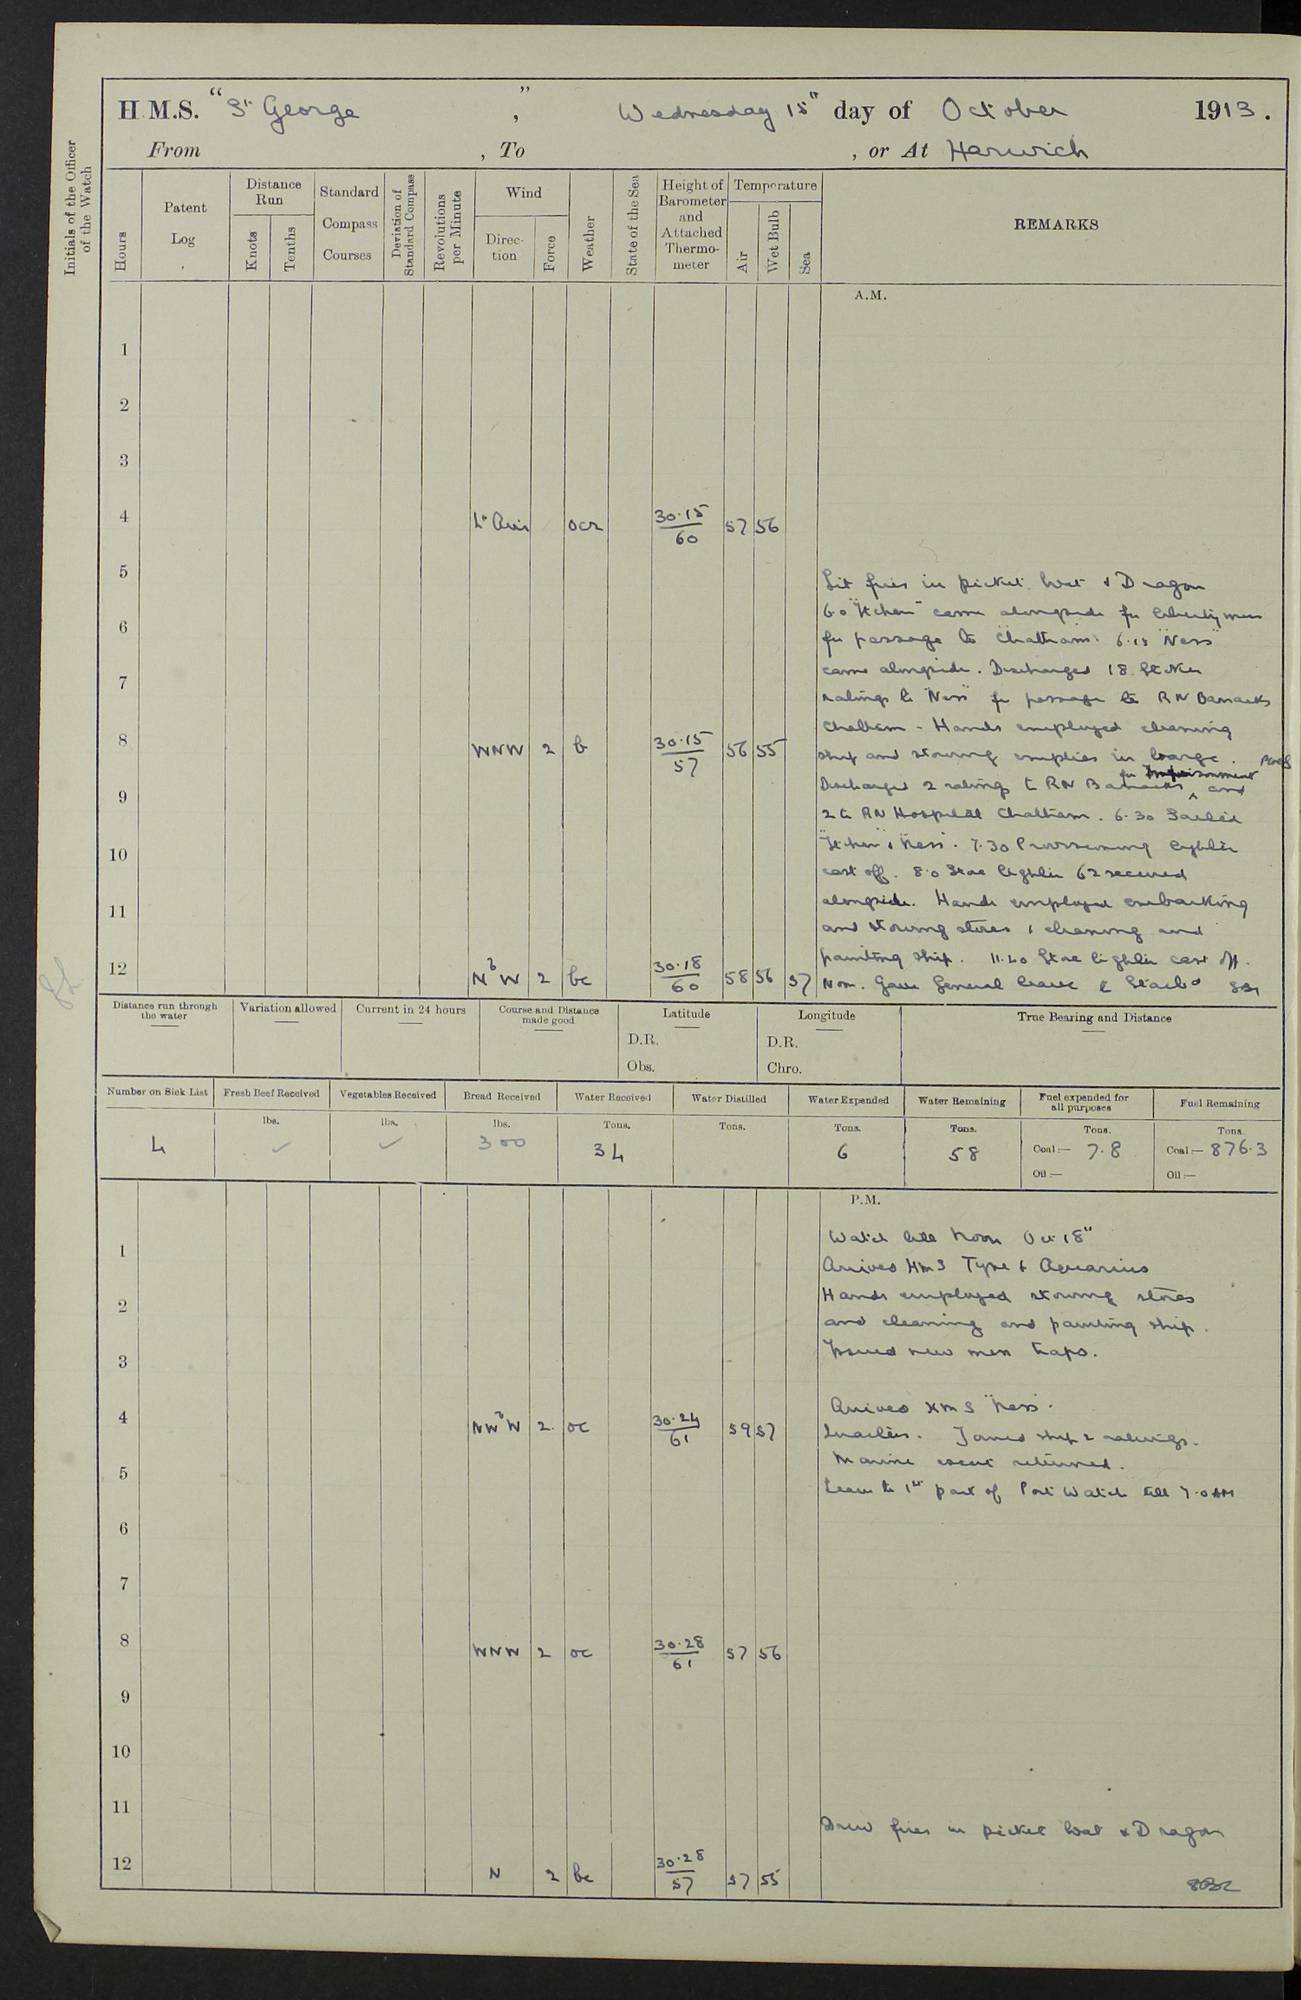 H.M.S. "St George", Wednesday 15th day of October 1913.
From , To , or At Harwich
Initials of the Officer of the Watch
Hours
Patent Log
Distance Run
Knots
Tenths
Standard Compass Courses
Deviation of Standard Compass
Revolutions per Minute
Wind
Direction
Force
Weather
State of the Sea
Height of Barometer and Attached Thermometer
Temperature
Air
Wet Bulb
Sea
REMARKS
A.M.
1
2
3
4 Lt Airs ocr 30.15/60 57 56
5
Lit fires in picket boat & Dragon
6.0 "Itchen" came alongside for liberty men
6
for passage to Chatham. 6.15 "Ness"
came alongside. Discharged 18 Stoker
7
ratings to "Ness" for passage to RN Barracks
Chatham - Hands employed cleaning
8 WNW 2 b 30.15/57 56 55
ship and stowing empties in barge.
for Imprisonment
Discharged 2 ratings to RN Barracks ^ and
9
2 to RN Hospital Chatham. 6.30 Sailed
"Itchen" & "Ness". 7.30 Provisioning lighter
10
cast off. 8.0 Store lighter 62 secured
alongside. Hands employed embarking
11
and stowing stores & cleaning and
painting ship. 11.20 Store lighter cast off.
12 N b W 2 bc 30.18/60 58 56 57
Noon. Gave General leave to Starbd
Distance run through the water
Variation allowed
Current in 24 hours
Course and Distance made good
Latitude
D.R.
Obs.
Longitude
D.R.
Chro.
True Bearing and Distance
Number on Sick List
Fresh Beef Received
Vegetables Received
Bread Received
Water Received
Water Distilled
Water Expended
Water Remaining
Fuel expended for all purposes
Fuel Remaining
lbs. lbs. lbs. Tons. Tons. Tons. Tons. Tons. Tons.
4 ✓ ✓ 300 34 6 58 Coal:— 7.8 Coal:— 876.3
Oil:— Oil:—
P.M.
Watch till Noon Oct 18th
1
Arrived HMS Tyne & Aquarius
2
Hands employed stowing stores
and cleaning and painting ship.
3
Issued new men traps.
Arrived HMS "Ness".
4 NW b W 2 oc 30.24/61 59 57
Quarters. Joined ship 2 ratings.
Marine escort returned.
5
Leave to 1st part of Port Watch till 7.0 AM
6
7
8 WNW 2 oc 30.28/61 57 56
9
10
11
Drew fires in picket boat & Dragon
12 N 2 bc 30.28/57 57 55